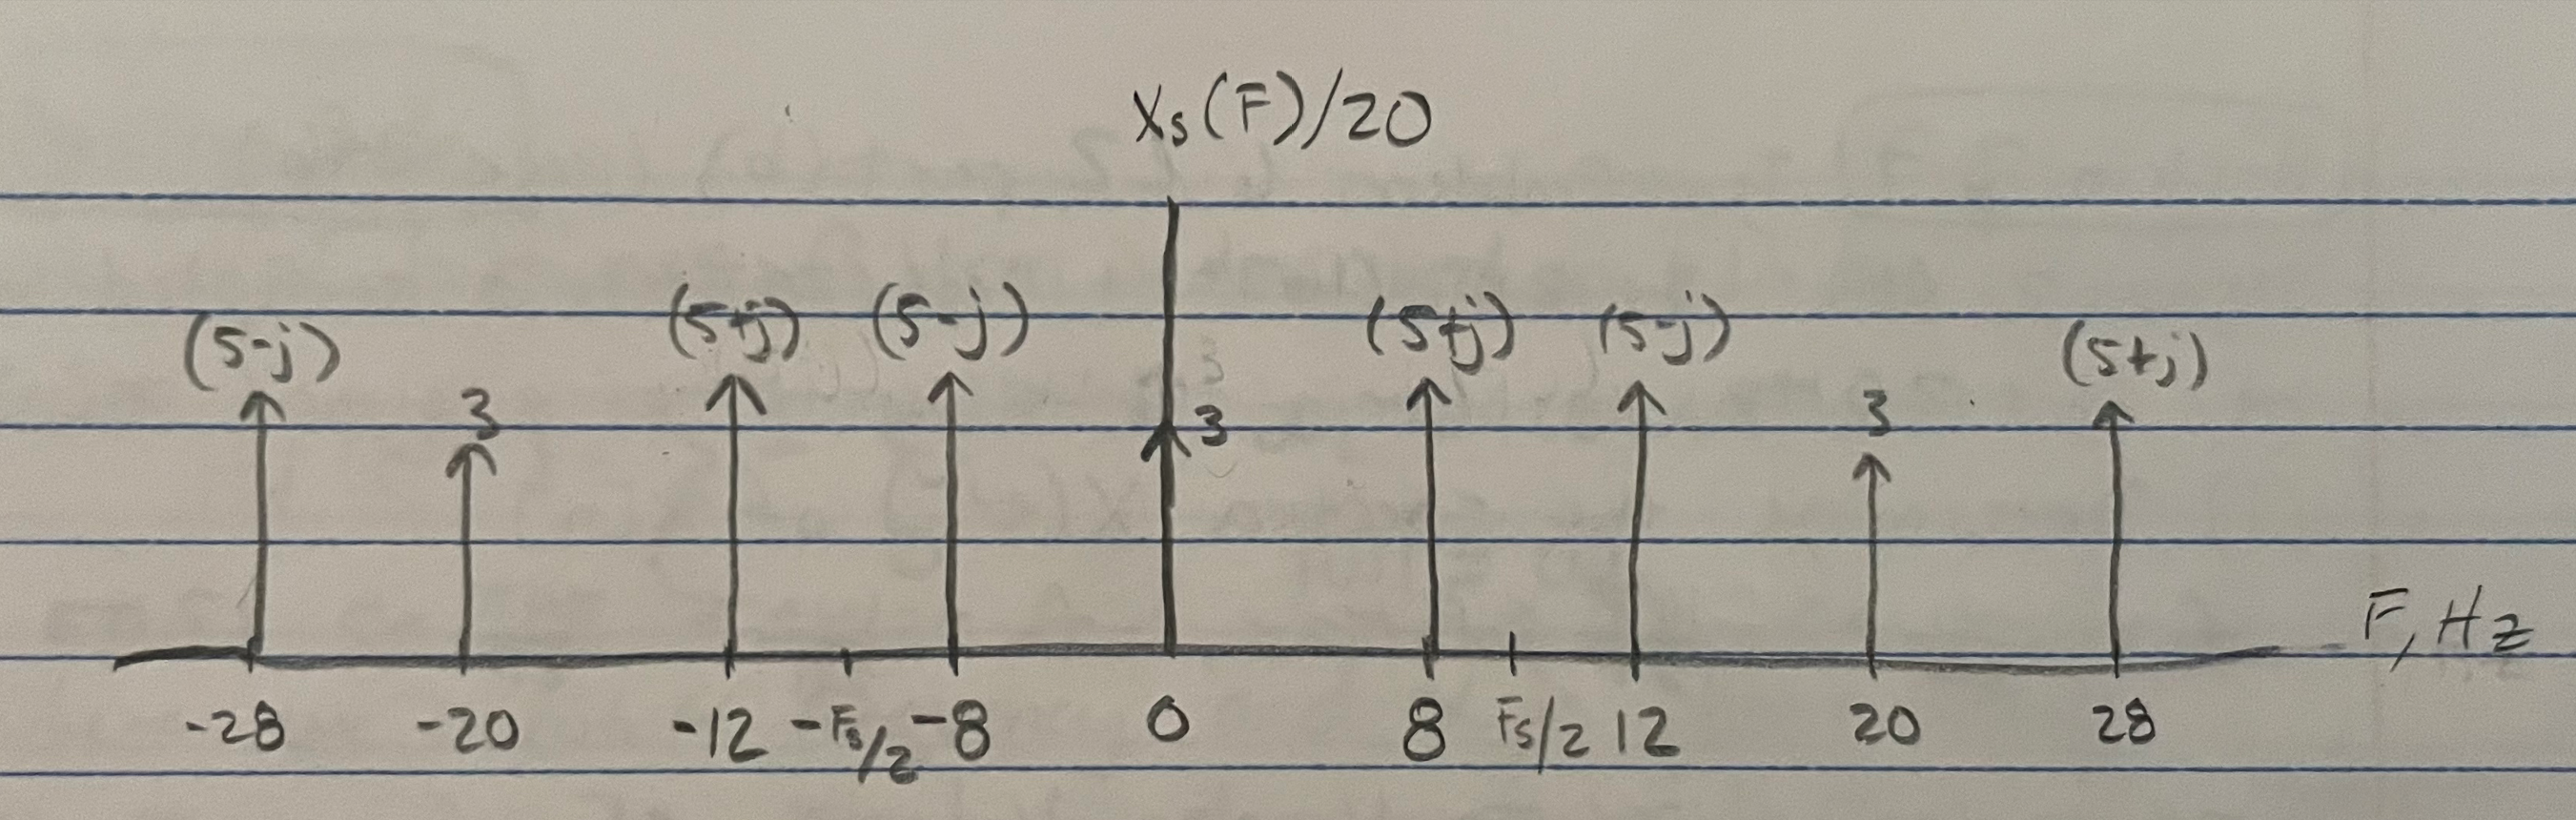 Xs(F)/20
(5-j) 3 (5+j) (5-j) 3 (5+j) (5-j) 3 (5+j)
-28 -20 -12 -Fs/2 -8 0 8 Fs/2 12 20 28 F, Hz